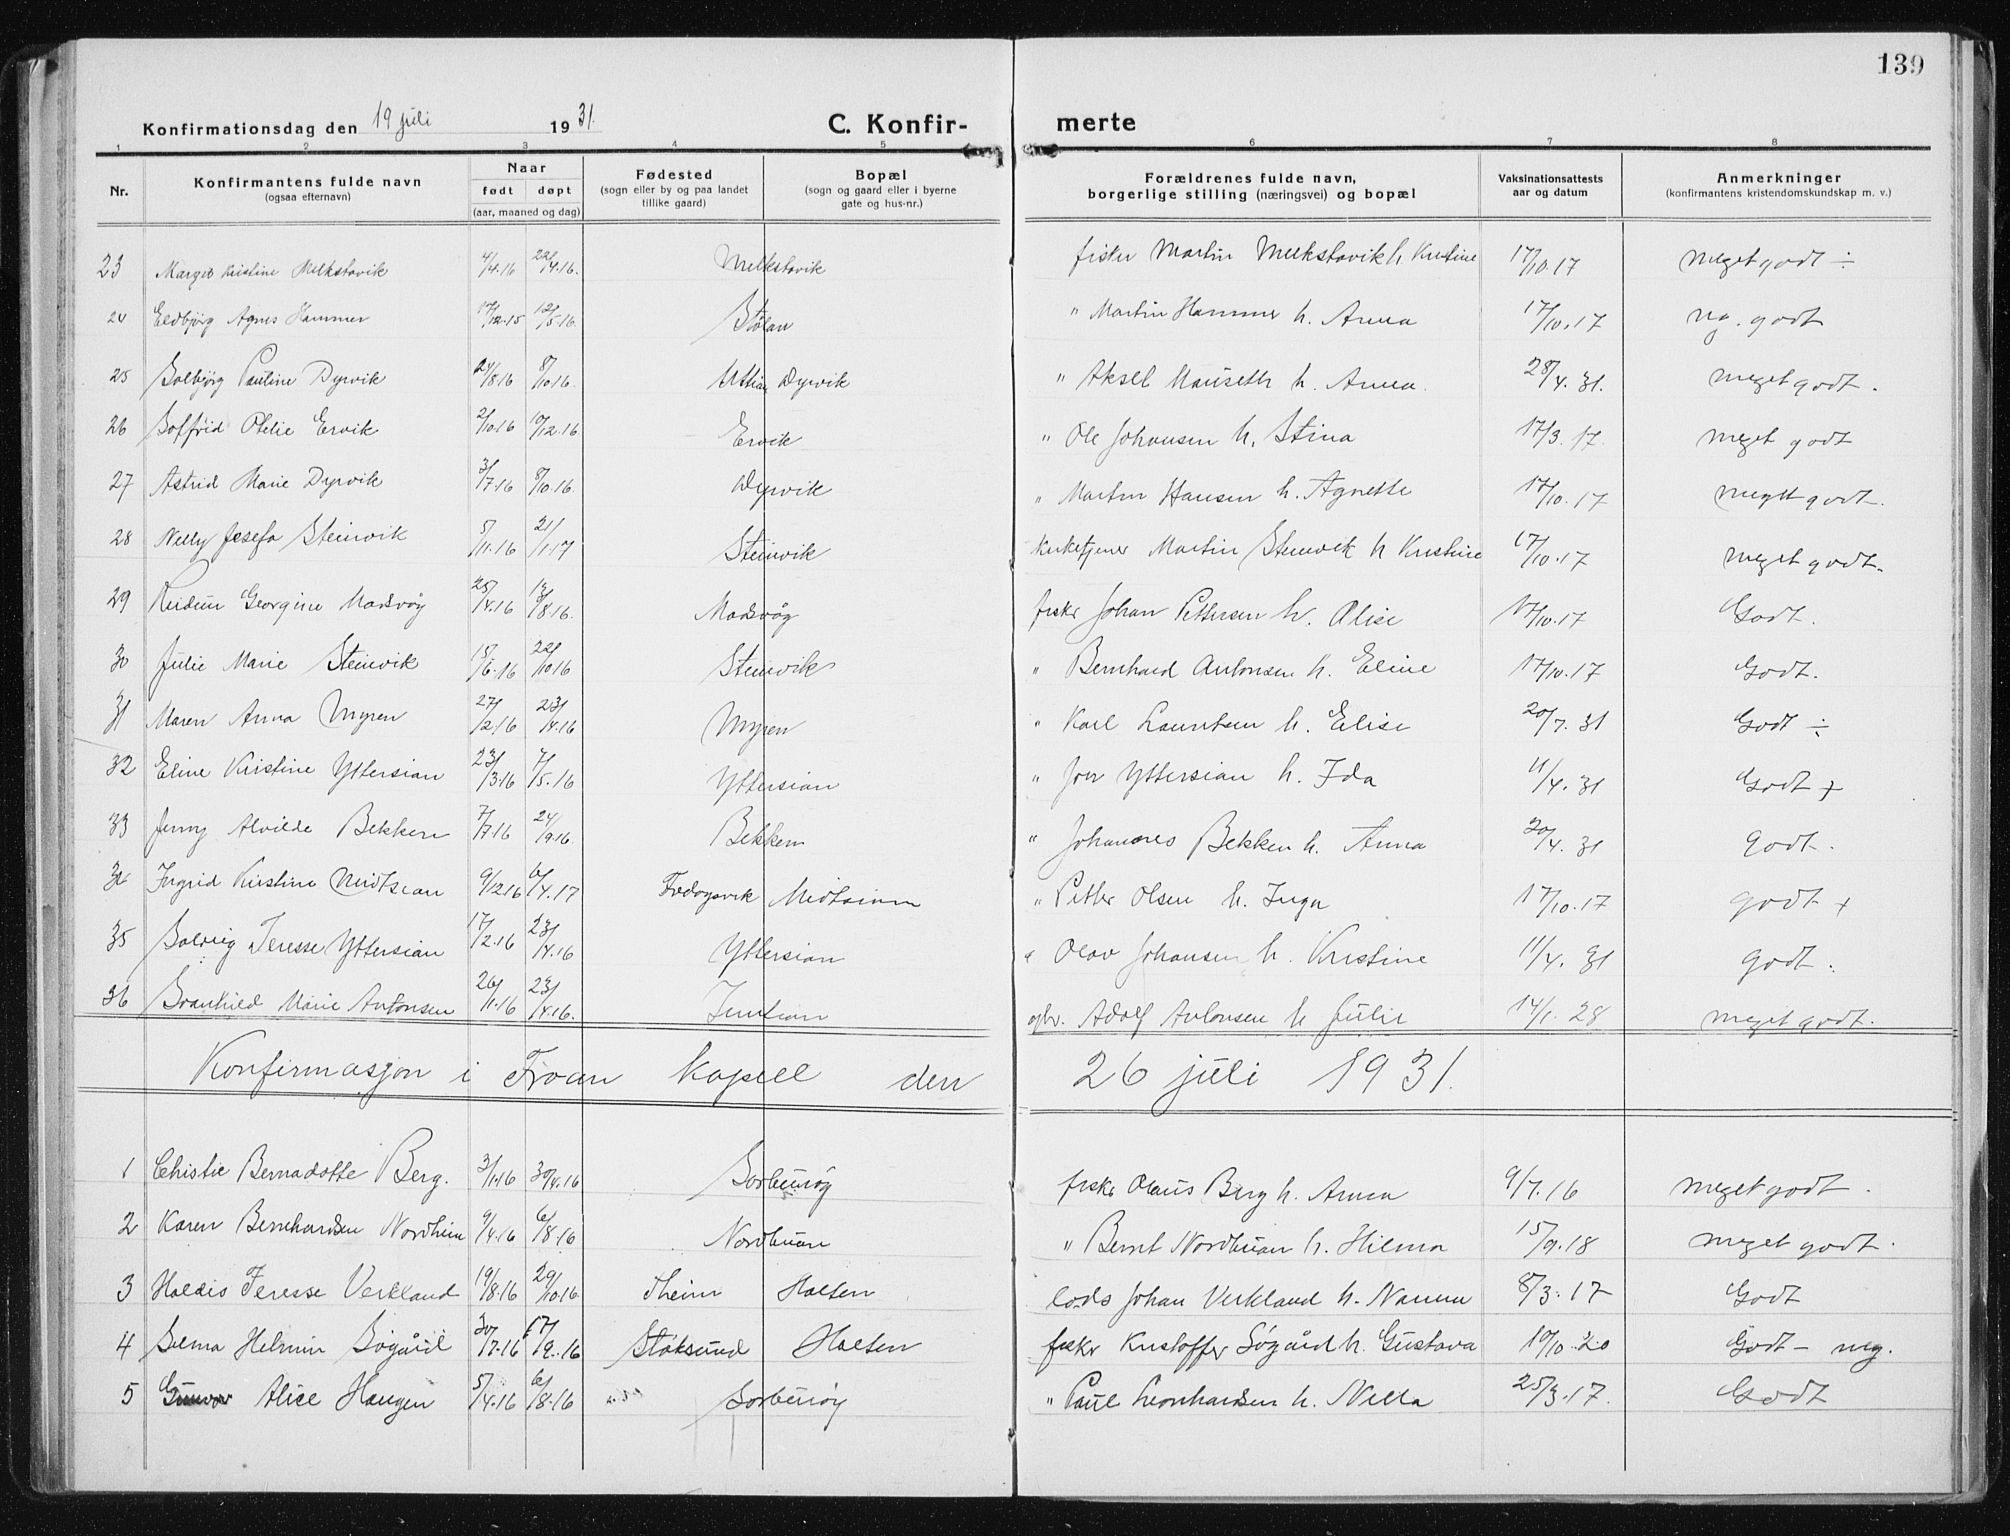 139
Konfirmationsdag den 19 juli 1931. C. Konfir- merte
1 2 3 4 5 6 7 8
Nr. Konfirmantens fulde navn (ogsaa efternavn) Naar født døpt (aar, maaned og dag) Fødested (sogn eller by og paa landet tillike gaard) Bopæl (sogn og gaard eller i byerne gate og hus-nr.) Forældrenes fulde navn, borgerlige stilling (næringsvei) og bopæl Vaksinationsattests aar og datum Anmerkninger (konfirmantens kristendomskundskap m. v.)
23 Margit Kristine Melkstavik 4/4.16 22/4.16. Melkstavik fisker Martin Melkstavik h. Kristine 17/10.17 meget godt ÷
24 Eldbjørg Agnes Hammer 17/12.15 12/5.16. Stølan " Martin Hammer h. Anna 17/10.17 mg. godt
25 Solbjørg Pauline Dyrvik 24/8.16 8/10.16. Dyrvik " Aksel Mauseth h. Anna. 28/4.31. meget godt.
26 Solfrid Otelie Ervik 2/10.16 10/12.16. Ervik " Ole Johansen h. Stina 17/3.17. meget godt
27 Astrid Marie Dyrvik 3/7.16 8/10.16. Dyrvik " Martin Hansen h. Agnette 17/10.17 meget godt.
28 Nelly Josefa Steinvik 5/11.16 21/1.17 Steinvik Kirketjener Martin Steinvik h Kristine 17/10.17 meget godt.
29 Reidun Georgine Madsvåg 25/4.16 13/8.16. Madsvåg fisker Johan Pettersen h. Alise 17/10.17 Godt.
30 Julie Marie Steinvik 15/6.16 22/10.16 Steinvik " Bernhard Antonsen h. Eline 17/10.17 Godt.
31 Maren Anna Myren 27/2.16 23/4.16 Myren " Karl Lauritsen h. Elise 20/7.31 Godt ÷
32 Eline Kristine Yttersian 23/3.16 7/5.16 Yttersian " Joer Yttersian h. Ida 11/4.31 Godt +
33 Jenny Alvilde Bekken 7/7.16 24/9.16. Bekken " Johannes Bekken h. Anna 20/4.31 godt.
34 Ingrid Kristine Midtsian 9/12.16 6/4.17 Midtsian " Petter Olsen h. Inga 17/10.17 godt +
35 Solveig Teresse Yttersian 17/2.16 23/4.16 Yttersian " Olav Johansen h. Kristine 11/4.31 godt.
36 Svanhild Marie Antonsen 26/11.16 23/4.16. Inntian gbr. Adolf Antonsen h Julie 14/1.28 meget godt.
Konfirmasjon i Froan kapell den 26 juli 1931.
1 Christie Bernadotte Berg. 3/1.16 30/4.16 Sørburøy fisker Olaus Berg h. Anna 9/7.16 meget godt.
2 Karen Bernhardsen Nordheim 9/4.16 6/8.16 Nordbuan " Bernt Nordbuan h. Hilma 15/9.18 meget godt.
3 Haldis Teresse Verkland 19/8.16 29/10.16 Halten lods Johan Verkland h. Nanna 8/3.17 Godt
4 Selma Helmine Søgård 30/7.16 17/9.16 Stoksund Halten fisker Kristoffer Søgård h. Gustava 10/10.20 Godt – mg.
5 Gunvor Alice Haugen 5/4.16 6/8.16 Sørburøy " Paul Leonhardsen h. Nella 25/3.17. Godt